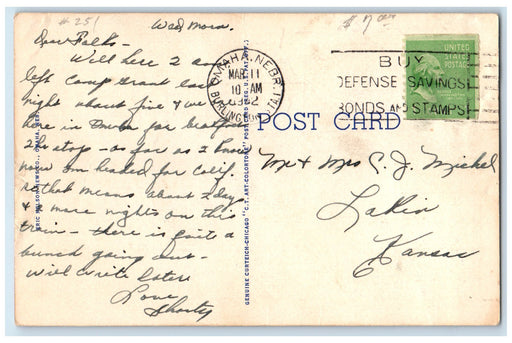 # 251
$ 7.00
Wed Morn.
Dear Folks -
Well here I am
left Camp Grant last
night about five & we are
here in Omaha for breakfast
2 hr stop - as far as I know
now am headed for Calif.
so that means about 2 days
& 2 more nights on this
train - there is quite a
bunch going out -
will write later
Love
Shorty
OMAHA, NEBR.
MAR 11
10 AM
1942
BUY
DEFENSE SAVINGS
BONDS AND STAMPS
UNITED
STATES
POSTAGE
POST CARD
Mr & Mrs C. J. Michel
Lakin
Kansas
GENUINE CURTEICH-CHICAGO "C.T. ART-COLORTONE" POST CARD (REG. U.S. PAT. OFF.)